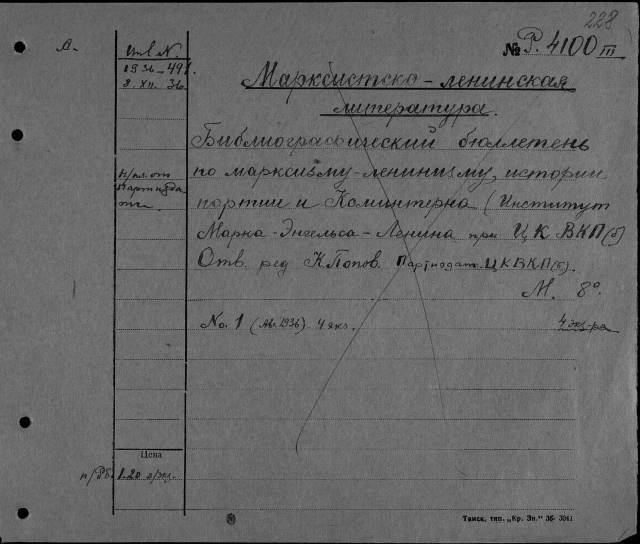 228
А.
Инв. N.
№ Р. 4100 III
1936-491.
8. XII. 36
Марксистско-ленинская
литература.
Библиографический бюллетень
по марксизму-ленинизму, истории
партии и Коминтерна (Институт
Маркса-Энгельса-Ленина при ЦК ВКП(б)
Отв. ред К.Попов. Партиздат. ЦКВКП(б).
М. 8°.
No. 1 (Авг. 1936) 4 экз.
4 экз-ра
Цена
1.20 з/экз.
Томск, тип. „Кр. Зн." 36-3941